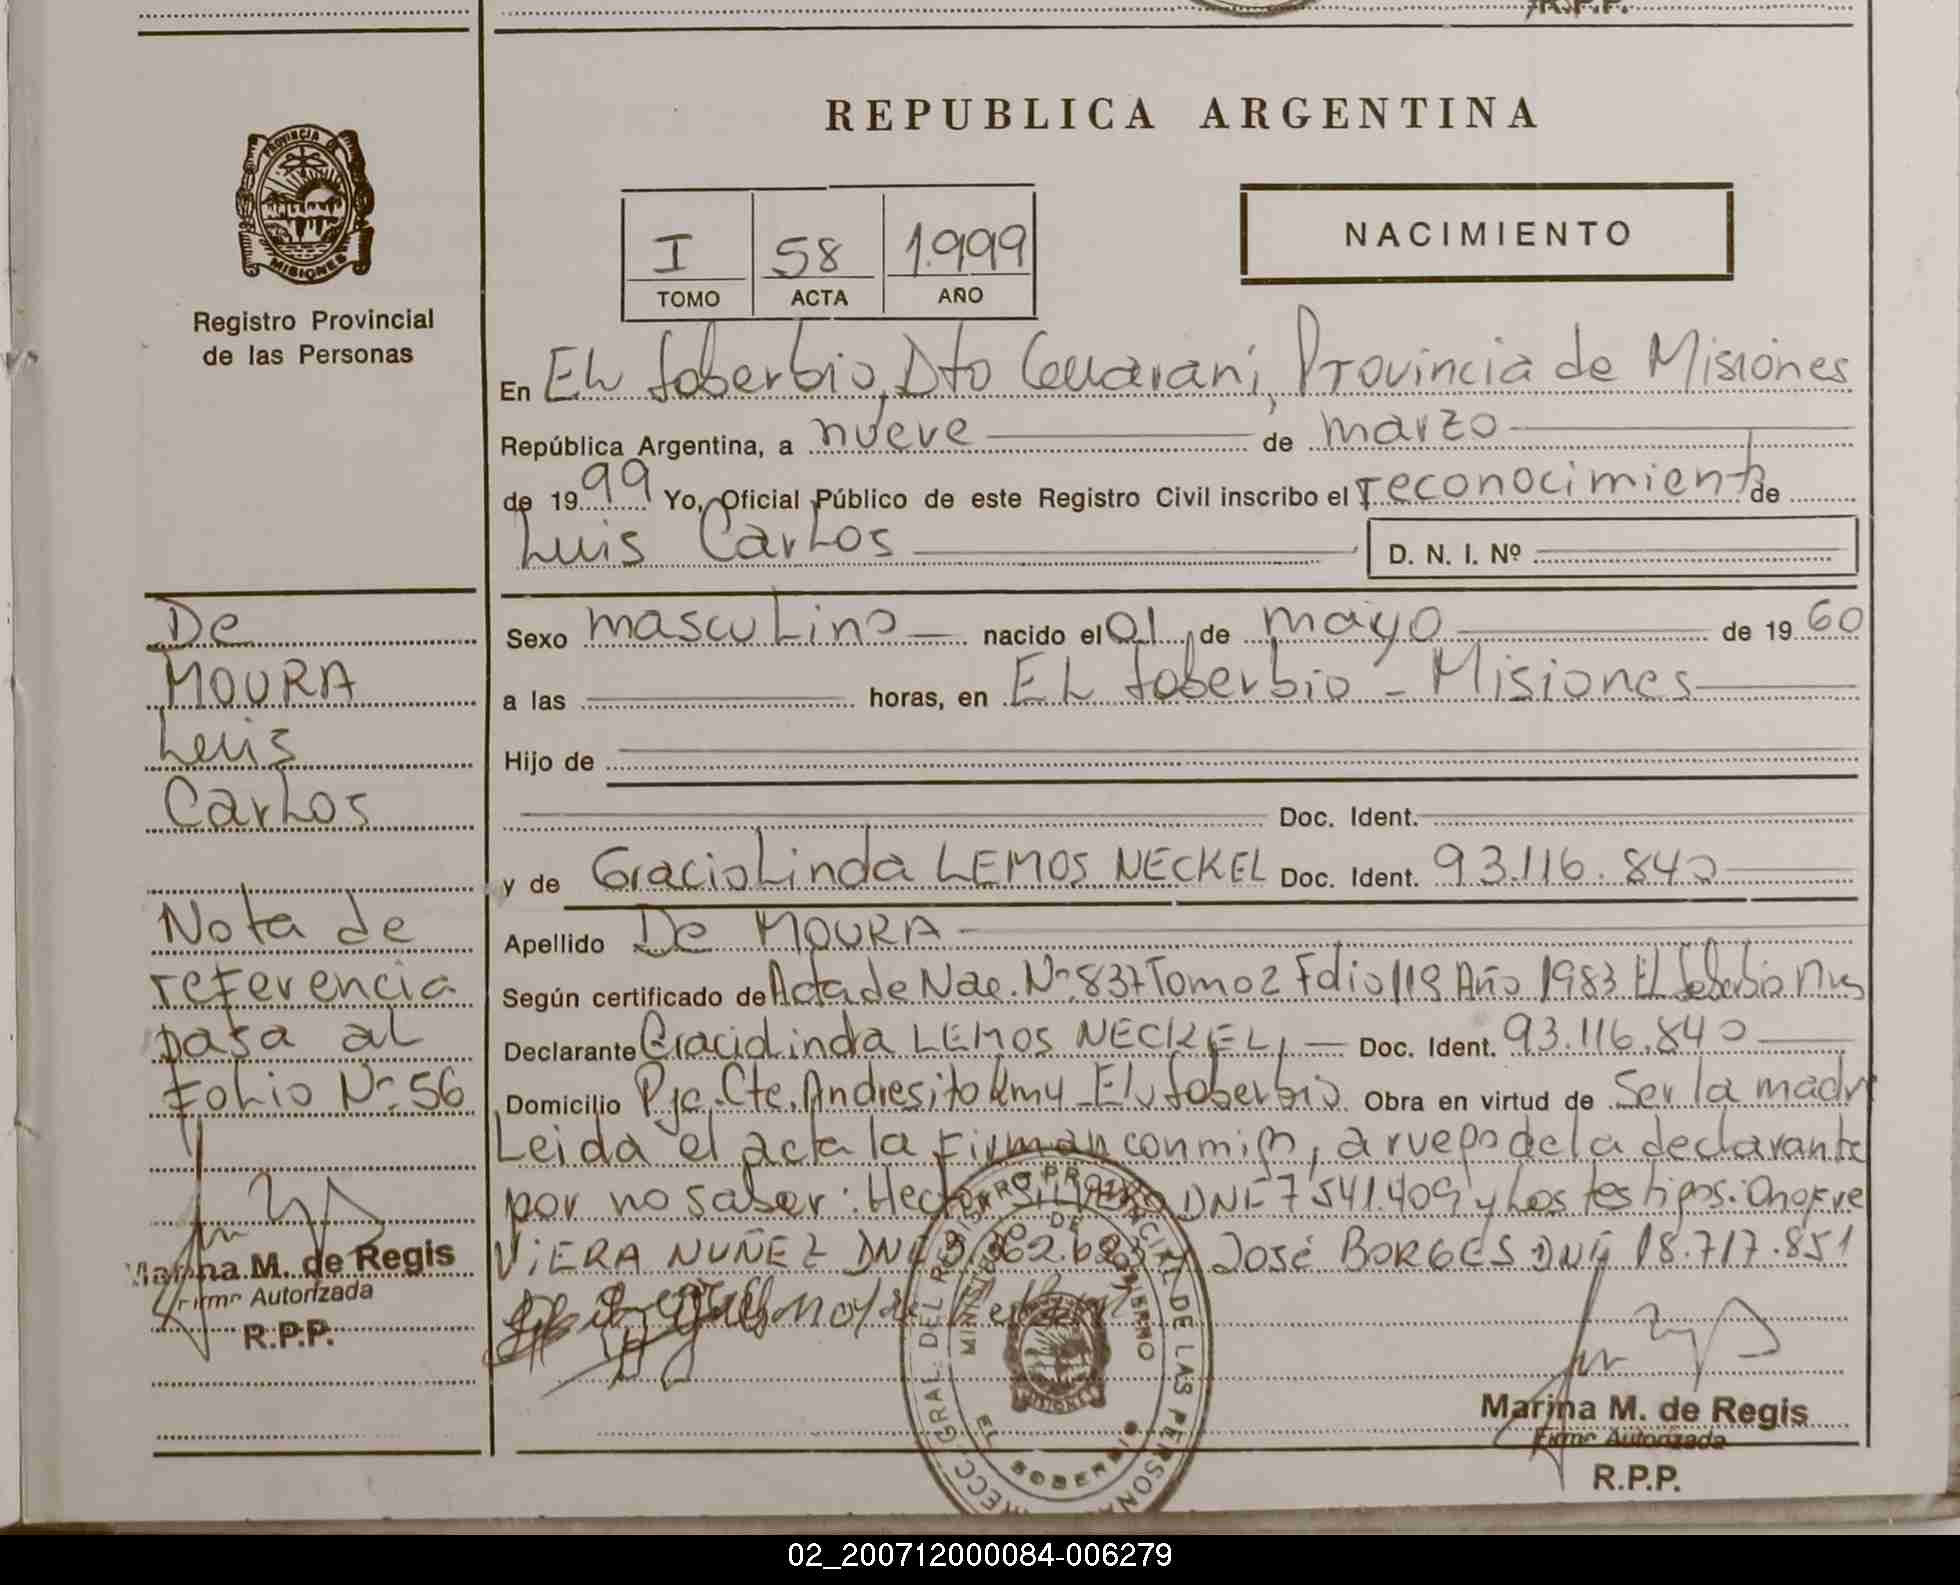 R.P.P.
REPUBLICA ARGENTINA
PROVINCIA DE
MISIONES
Registro Provincial
de las Personas
I 58 1.999
TOMO ACTA AÑO
NACIMIENTO
En EL Soberbio, Dto Guaraní, Provincia de Misiones
República Argentina, a nueve de marzo
de 1999 Yo, Oficial Público de este Registro Civil inscribo el reconocimiento de
Luis Carlos D. N. I. Nº
De
MOURA
Luis
Carlos
Sexo masculino nacido el 01 de mayo de 1960
a las horas, en EL Soberbio - Misiones
Hijo de
Doc. Ident.
y de Graciolinda LEMOS NECKEL Doc. Ident. 93.116.840
Nota de
referencia
pasa al
Folio Nº 56
Marina M. de Regis
Firma Autorizada
R.P.P.
Apellido De MOURA
Según certificado de Acta de Nac. Nº 837 Tomo 2 Folio 119 Año 1983 El Soberbio Mnes
Declarante Graciolinda LEMOS NECKEL, Doc. Ident. 93.116.840
Domicilio Pje. Cte. Andresito Km4 - EL Soberbio Obra en virtud de Ser la madre
Leida el acta la firman conmigo, a ruego de la declarante
por no saber: Hector DNI 7.541.409 y Los testigos: Onofre
VIERA NUÑEZ DNI y José BORGES DNI 18.717.851
DIRECC. GRAL. DEL REGISTRO PROVINCIAL DE LAS PERSONAS
MINISTERIO DE GOBIERNO
MISIONES
EL SOBERBIO
Marina M. de Regis
Firma Autorizada
R.P.P.
02_200712000084-006279